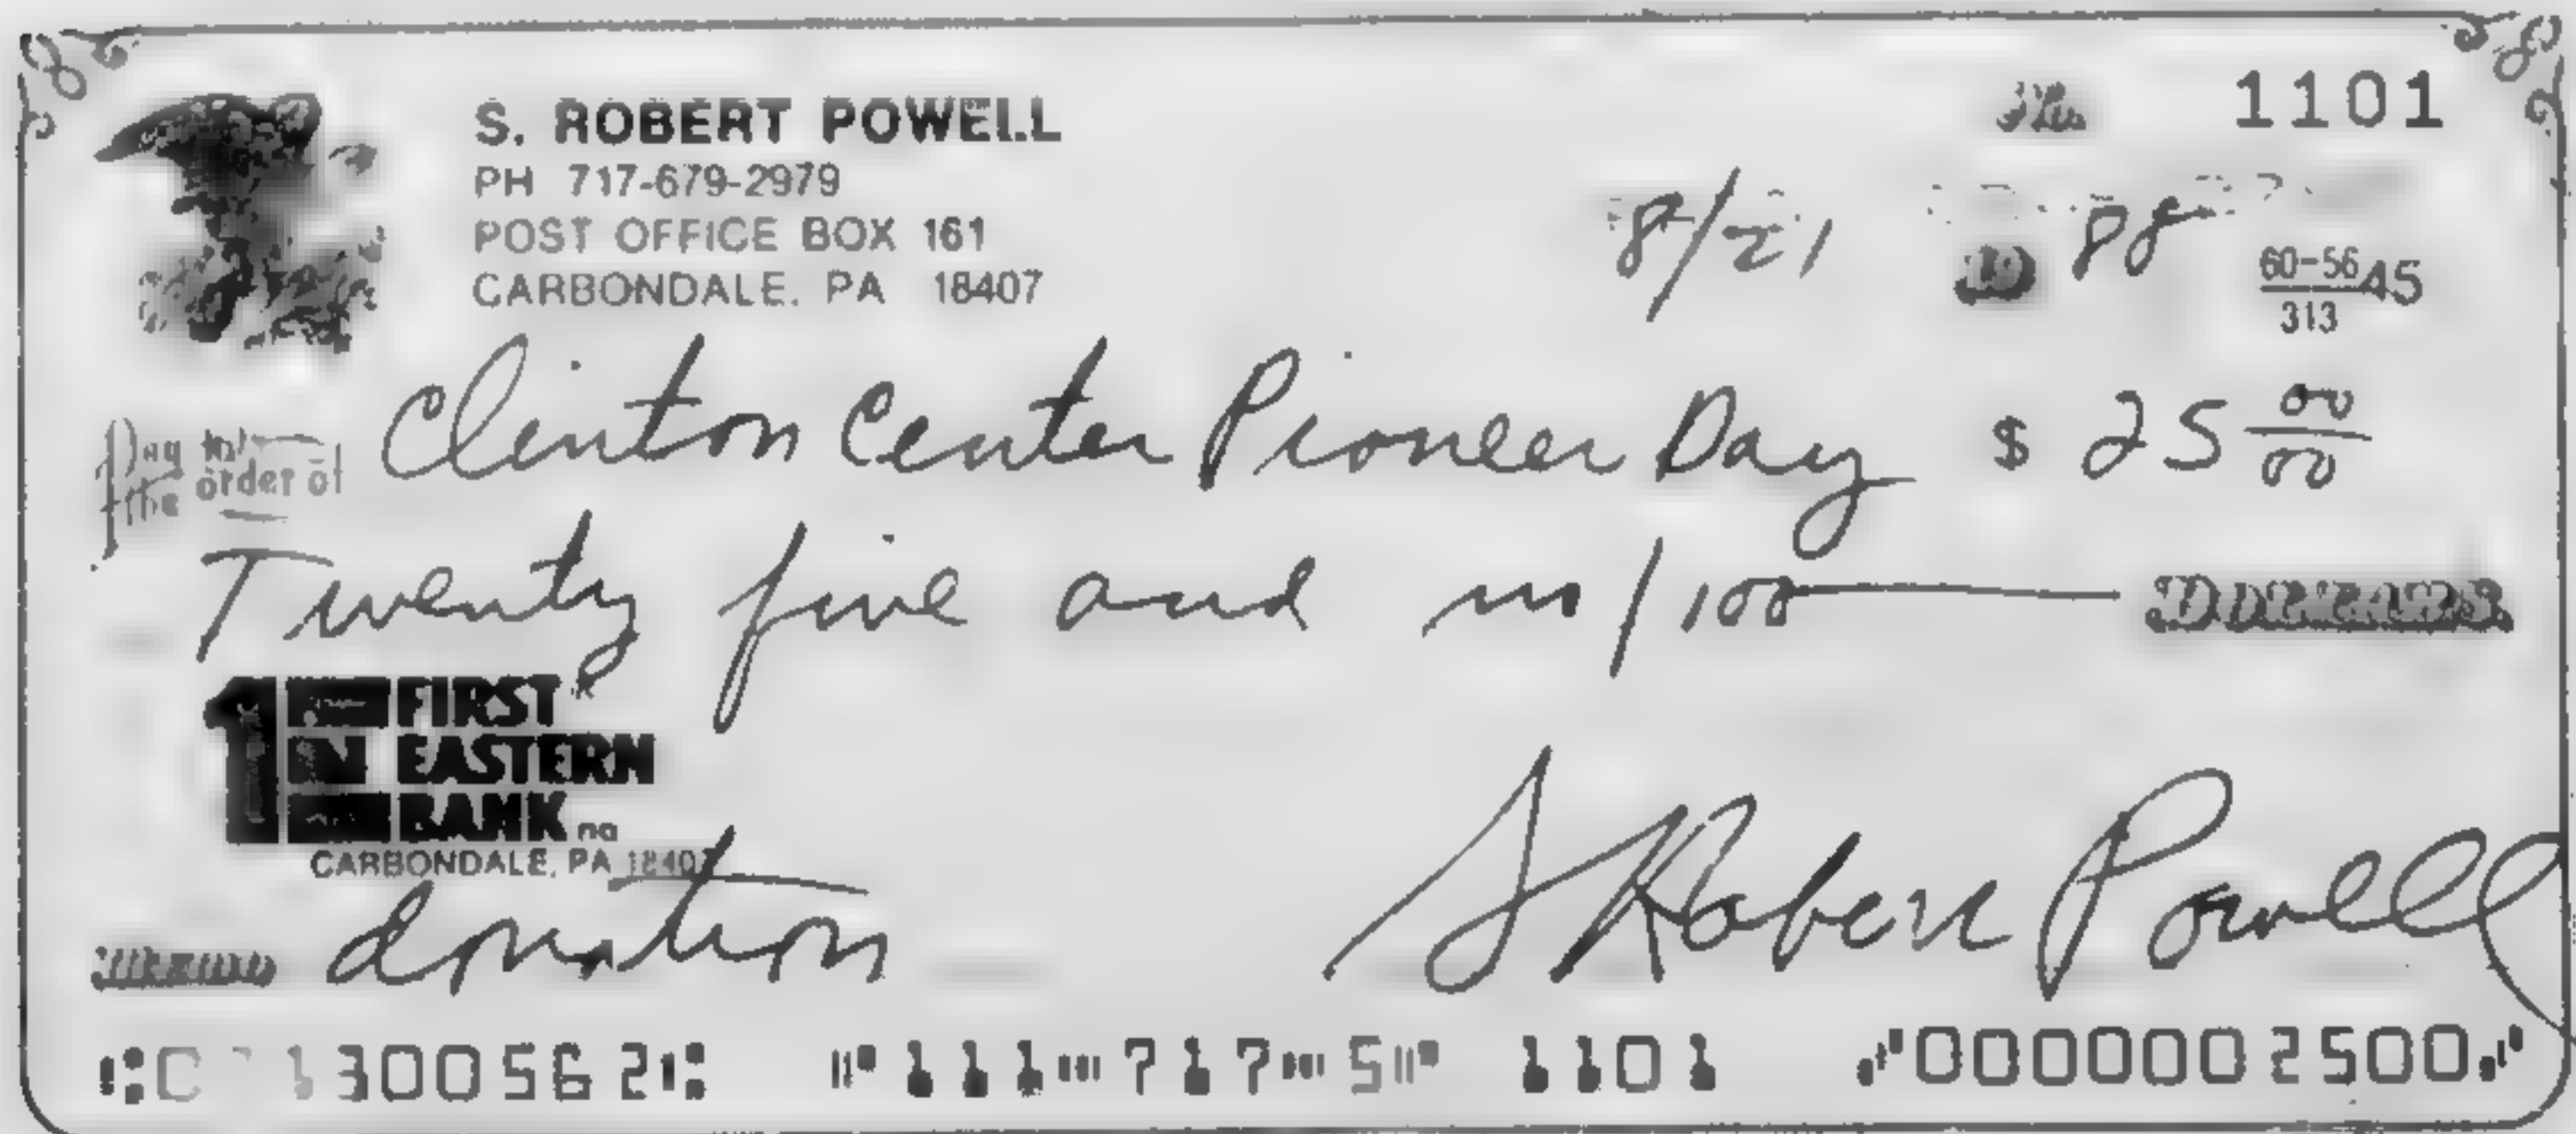 No. 1101
S. ROBERT POWELL
PH 717-679-2979
POST OFFICE BOX 161
CARBONDALE, PA 18407
8/21 19 88
60-56 45
313
Pay to the order of Clinton Center Pioneer Day $ 25 00/00
Twenty five and no/100 DOLLARS
1 FIRST
EASTERN
BANK na
CARBONDALE, PA 18407
MEMO donation
S Robert Powell
300562 111-717-5 1101 0000002500